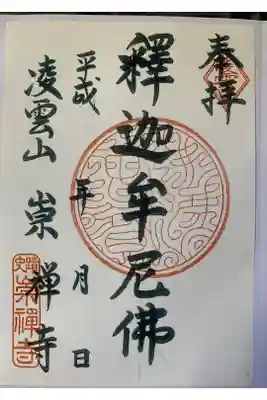 奉拝
釋迦牟尼佛
平成 年 月 日
凌雲山 崇禅寺
崇禪寺